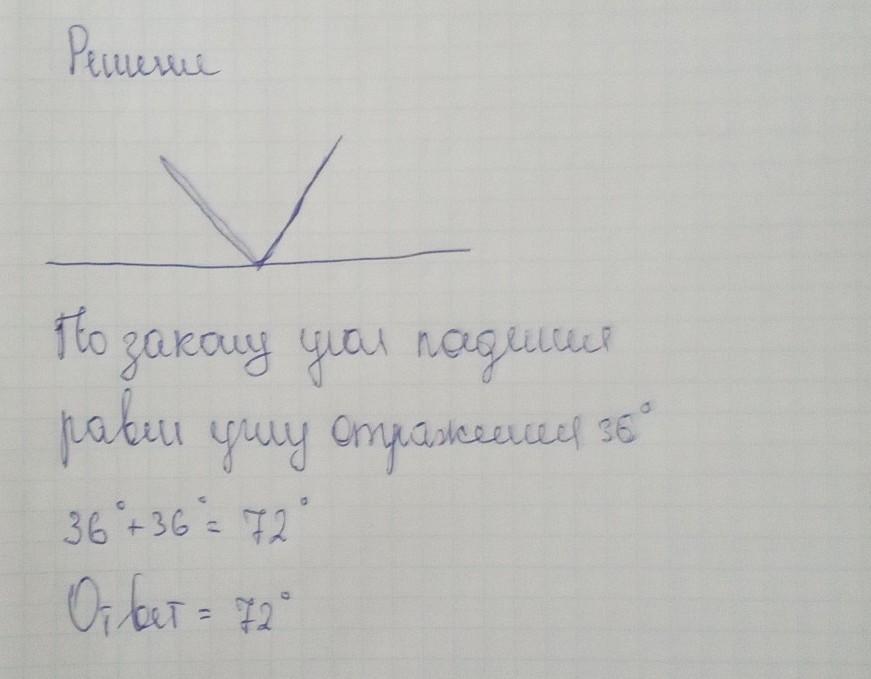 Решение
По закону угол падения
равен углу отражения 36°
36° + 36° = 72°
Ответ = 72°